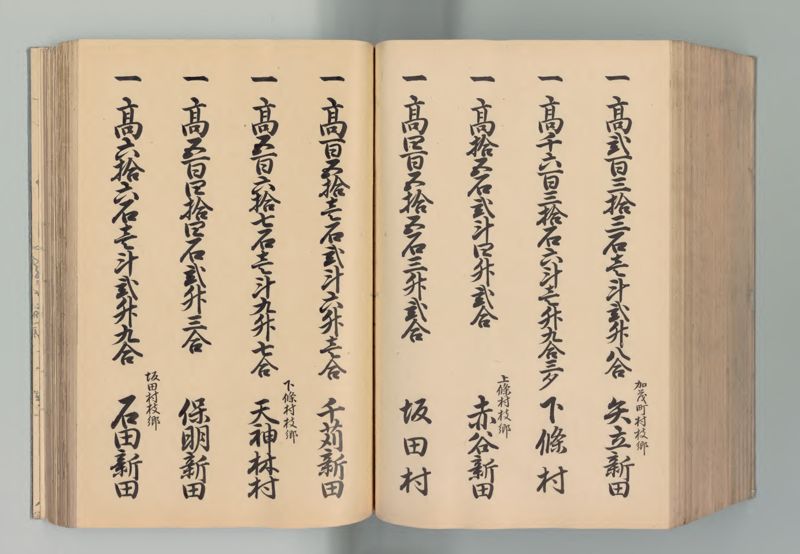 一 高弐百三拾三石壱斗弐升八合 加茂町村枝郷 矢立新田
一 高千六百三拾石六斗壱升九合三夕 下條村
一 高拾五石弐斗四升弐合 上條村枝郷 赤谷新田
一 高四百五拾五石三升弐合 坂田村
一 高百五拾壱石弐斗六升壱合 千苅新田
一 高五百六拾七石壱斗九升七合 下條村枝郷 天神林村
一 高五百四拾四石弐升三合 保明新田
一 高六拾六石壱斗弐升九合 坂田村枝郷 石田新田